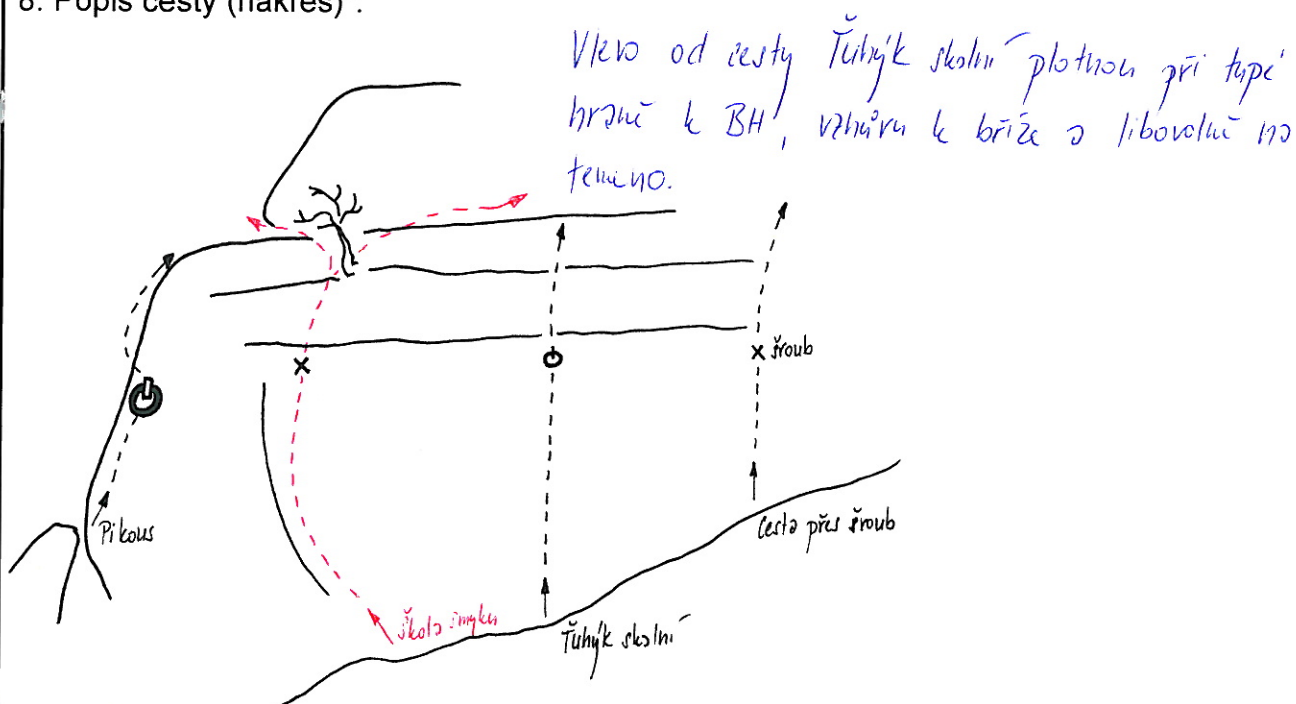 8. Popis cesty (nákres) :
Vlevo od cesty Ťuhýk skalní plotnou při tupé
hraně k BH, vzhůru k bříze a libovolně na
temeno.
šroub
Pikous
Cesta přes šroub
Škola smyku
Ťuhýk skalní